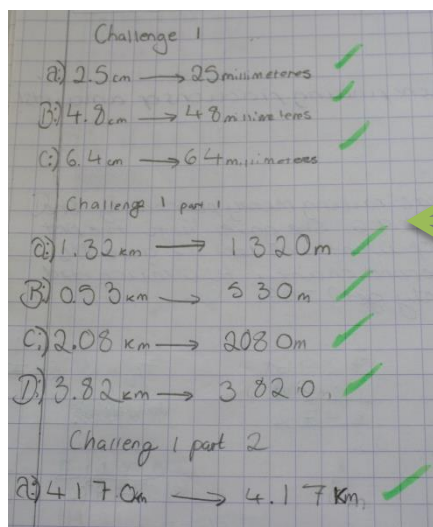 Challenge 1
a:) 2.5cm → 25millimeteres
B:) 4.8cm → 48millimeteres
C:) 6.4cm → 64millimeteres
Challenge 1 part 1
a:) 1.32km → 1320m
B:) 0.53km → 530m
C:) 2.08 km → 2080m
D:) 3.82km → 3820
Challeng 1 part 2
a:) 4170m → 4.17Km